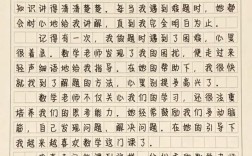 知识讲得清清楚楚。每当我遇到难题时，她都
会耐心地给我讲解，直到我完全明白为止。
记得有一次，我做题时遇到了困难，心里
很着急。数学老师发现了我的困扰，便走过来
轻声细语地给我指导。在她的帮助下，我很快
就找到了解题的方法，心里别提多高兴了。
数学老师不仅关心我们的学习，还很注重
培养我们的思维能力。她经常鼓励我们多动脑
筋，自己发现问题，解决问题。在她的引导下
我越来越喜欢数学这门课了。